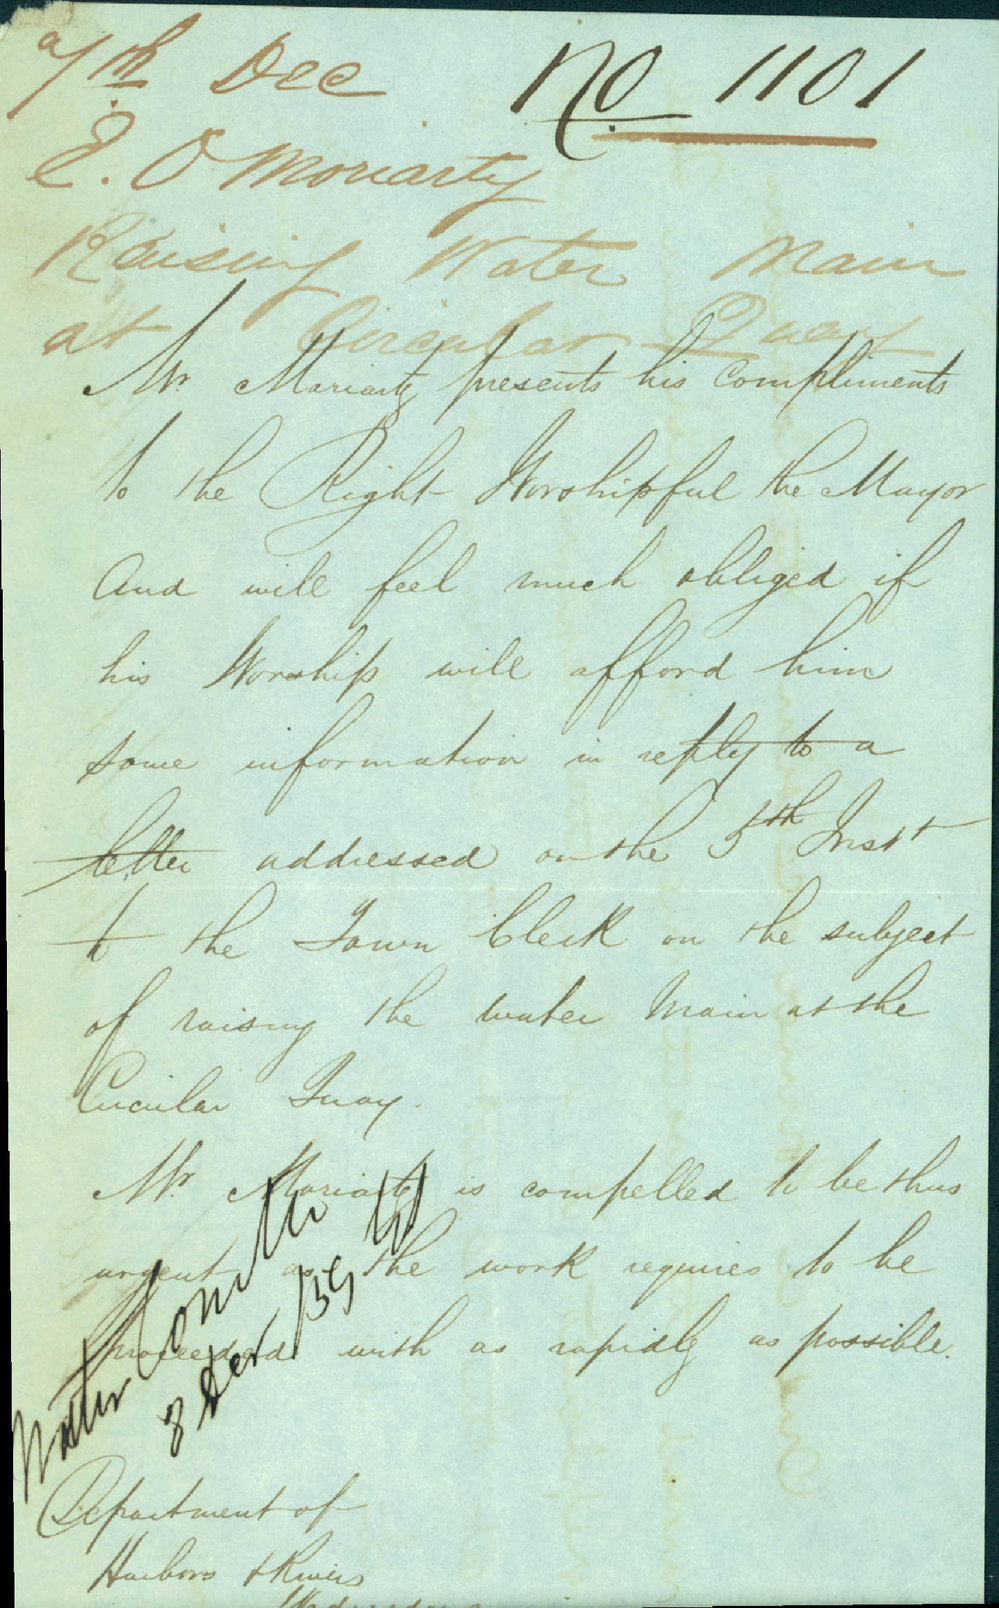 7th Dec
No 1101
E. O Moriarty
Raising Water Main
at Circular Quay
Mr. Moriarty presents his compliments
to the Right Worshipful the Mayor
And will feel much obliged if
his Worship will afford him
some information in reply to a
letter addressed on the 5th Inst
to the Town Clerk on the subject
of raising the water Main at the
Circular Quay.
Mr. Moriarty is compelled to be thus
urgent as the work requires to be
proceeded with as rapidly as possible.
Water Comttee
8 Decr /59
Department of
Harbors & Rivers
Wednesday